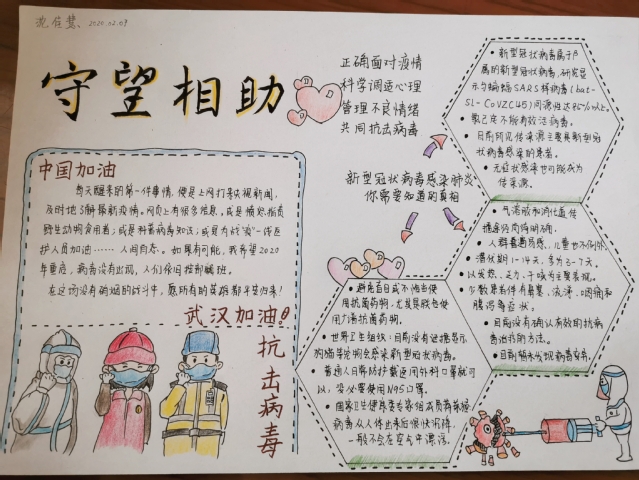 2020.02.09
守望相助
正确面对疫情
科学调适心理
管理不良情绪
共同抗击病毒
新型冠状病毒感染肺炎
你需要知道的真相
中国加油
每天醒来的第一件事情，便是上网打卡央视新闻，
及时地了解最新疫情。网页上有很多信息，或是愤怒指责
野生动物食用者；或是科普病毒知识；或是为战"疫"一线医
护人员加油……人间百态。如果有可能，我希望2020
年重启，病毒没有出现，人们依旧
在这场没有硝烟的战斗中，愿所有的英雄都平安归来！
武汉加油！
抗击病毒
新型冠状病毒属于β
属的新型冠状病毒，研究显
示与蝙蝠SARS样病毒（bat-
SL-CoVZC45）同源性达85%以上。
目前所见传染源主要是新型冠
状病毒感染的患者。
无症状感染者也可能成为
传染源。
气溶胶和消化道传
播途径尚待明确。
人群普遍易感，儿童也不例外。
潜伏期1-14天，多为3-7天。
以发热、乏力、干咳为主要表现。
少数患者伴有鼻塞、流涕、咽痛和
腹泻等症状。
目前没有确认有效的抗病
毒治疗方法。
避免盲目或不恰当使
用抗菌药物，尤其是联合使
用广谱抗菌药物。
世界卫生组织：目前没有证据显示
狗猫等宠物会感染新型冠状病毒。
普通人日常防护戴医用外科口罩就可
以，没必要使用N95口罩。
病毒从人体出来后很快沉降，
一般不会在空气中漂浮。